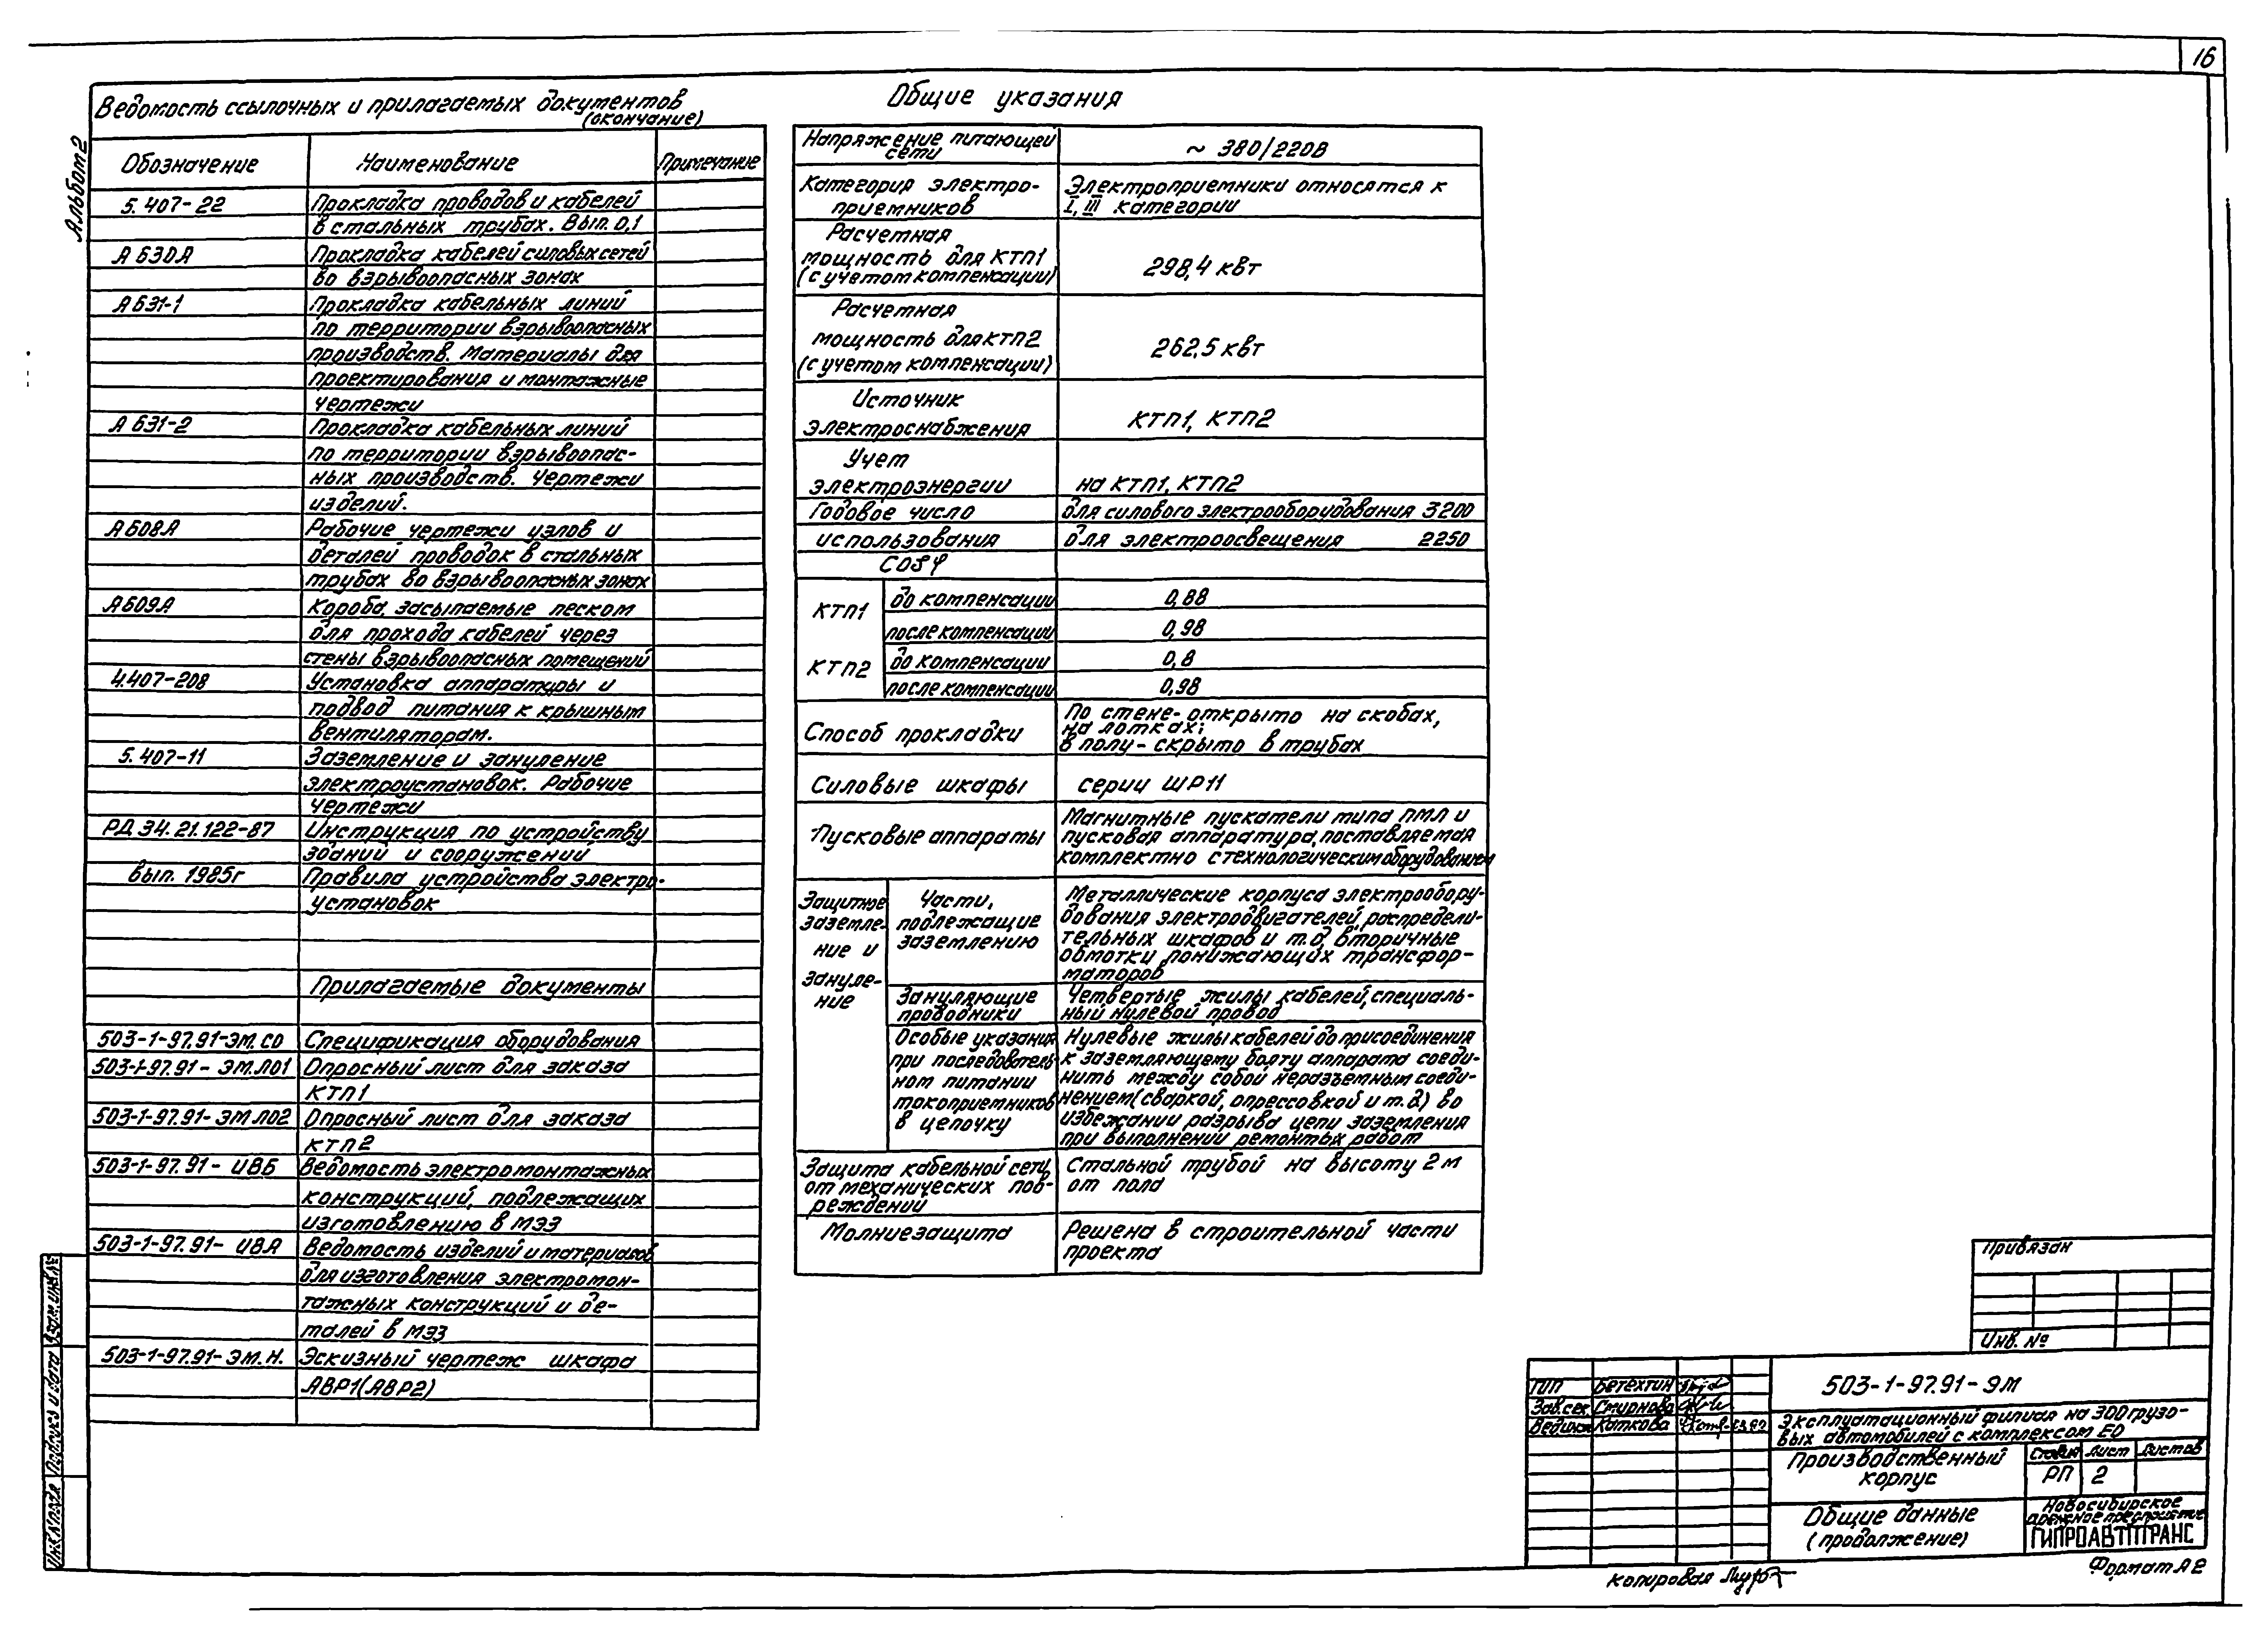 16
Альбом 2
Ведомость ссылочных и прилагаемых документов
(окончание)
Обозначение Наименование Примечание
5.407-22 Прокладка проводов и кабелей
в стальных трубах. Вып. 0,1
А630А Прокладка кабелей силовых сетей
во взрывоопасных зонах
А631-1 Прокладка кабельных линий
по территории взрывоопасных
производств. Материалы для
проектирования и монтажные
чертежи
А631-2 Прокладка кабельных линий
по территории взрывоопас-
ных производств. Чертежи
изделий.
А608А Рабочие чертежи узлов и
деталей проводок в стальных
трубах во взрывоопасных зонах
А609А Короба, засыпаемые песком
для прохода кабелей через
стены взрывоопасных помещений
4.407-208 Установка аппаратуры и
подвод питания к крышным
вентиляторам.
5.407-11 Заземление и зануление
электроустановок. Рабочие
чертежи
РД 34.21.122-87 Инструкция по устройству
зданий и сооружений
Вып. 1985г Правила устройства электро-
установок
Прилагаемые документы
503-1-97.91-ЭМ.СО Спецификация оборудования
503-1-97.91-ЭМ.Л01 Опросный лист для заказа
КТП1
503-1-97.91-ЭМ.Л02 Опросный лист для заказа
КТП2
503-1-97.91- ИВБ Ведомость электромонтажных
конструкций, подлежащих
изготовлению в МЭЗ
503-1-97.91- ИВА Ведомость изделий и материалов
для изготовления электромон-
тажных конструкций и де-
талей в МЭЗ
503-1-97.91-ЭМ.Н. Эскизный чертеж шкафа
АВР1(АВР2)
Общие указания
Напряжение питающей
сети
~ 380/220В
Категория электро-
приемников
Электроприемники относятся к
I, III категории
Расчетная
мощность для КТП1
(с учетом компенсации)
298,4 квт
Расчетная
мощность для КТП2
(с учетом компенсации)
262,5 квт
Источник
электроснабжения
КТП1, КТП2
Учет
электроэнергии
на КТП1, КТП2
Годовое число для силового электрооборудования 3200
использования для электроосвещения 2250
COSφ
КТП1 до компенсации 0,88
после компенсации 0,98
КТП2 до компенсации 0,8
после компенсации 0,98
Способ прокладки
По стене- открыто на скобах,
на лотках;
в полу - скрыто в трубах
Силовые шкафы серии ШР11
Пусковые аппараты
Магнитные пускатели типа ПМЛ и
пусковая аппаратура, поставляемая
комплектно с технологическим оборудованием
Защитное
заземле-
ние и
зануле-
ние
Части,
подлежащие
заземлению
Металлические корпуса электрообору-
дования электродвигателей, распредели-
тельных шкафов и т.д, вторичные
обмотки понижающих трансфор-
маторов
Зануляющие
проводники
Четвертые жилы кабелей, специаль-
ный нулевой провод
Особые указания
при последователь
ном питании
токоприемников
в цепочку
Нулевые жилы кабелей до присоединения
к заземляющему болту аппарата соеди-
нить между собой неразъемным соеди-
нением (сваркой, опрессовкой и т.д) во
избежании разрыва цепи заземления
при выполнении ремонтых работ
Защита кабельной сети
от механических пов-
реждений
Стальной трубой на высоту 2 м
от пола
Молниезащита
Решена в строительной части
проекта
Привязан
Инв. №
ГИП Бетехтин
Зав.сек Смирнова
Вединж Каткова
503-1-97.91-ЭМ
Эксплуатационный филиал на 300 грузо-
вых автомобилей с комплексом ЕО
Производственный
корпус
Стадия Лист Листов
РП 2
Общие данные
(продолжение)
Новосибирское
арендное предприятие
ГИПРОАВТТРАНС
Копировал
Формат А2
Взам. инв. №
Подпись и дата
Инв. № подл